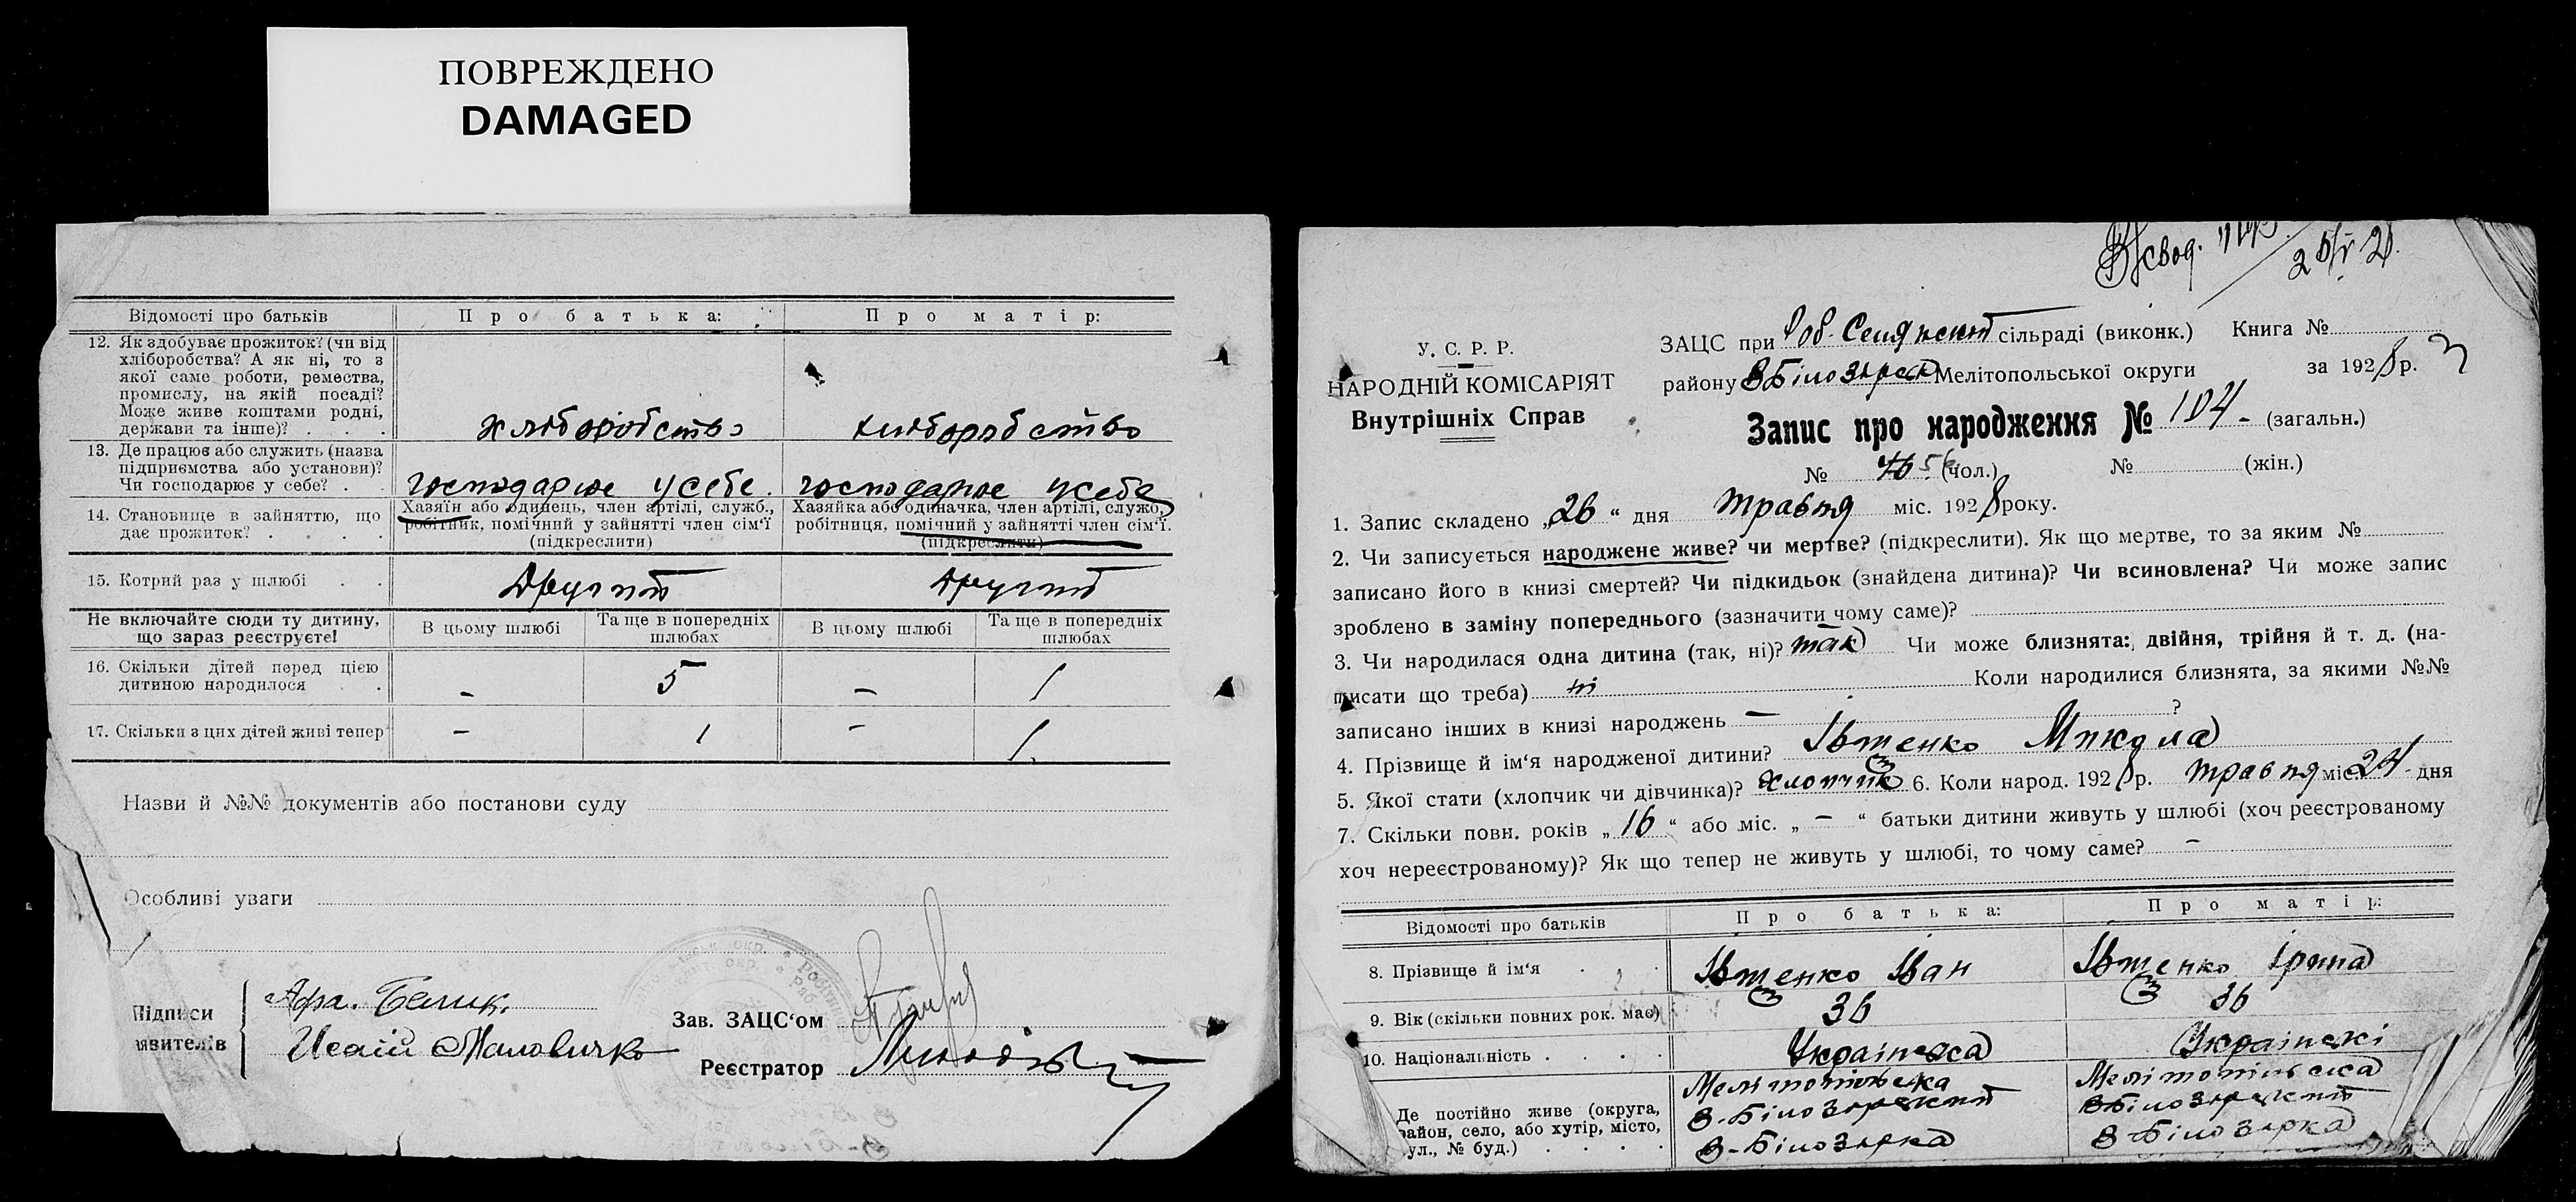 ПОВРЕЖДЕНО
DAMAGED
Відомості про батьків
Про батька:
Про матір:
12. Як здобуває прожиток? (чи від
хліборобства? А як ні, то з
якої саме роботи, ремества,
промислу, на якій посаді?
Може живе коштами родні,
держави та інше)? . . .
хліборобство
хліборобство
13. Де працює або служить (назва
підприємства або установи)?
Чи господарює у себе? . .
господарює у себе.
господарює у себе
14. Становище в зайняттю, що
дає прожиток? . . . .
Хазяїн або одинець, член артілі, служб.,
робітник, помічний у зайнятті член сім'ї
(підкреслити)
Хазяйка або одиначка, член артілі, служб.,
робітниця, помічний у зайнятті член сім'ї.
(підкреслити)
15. Котрий раз у шлюбі . .
Другий
Другий
Не включайте сюди ту дитину,
що зараз реєструєте!
В цьому шлюбі
Та ще в попередніх
шлюбах
В цьому шлюбі
Та ще в попередніх
шлюбах
16. Скільки дітей перед цією
дитиною народилося . .
- 5 - 1
17. Скільки з цих дітей живі тепер
- 1 - 1
Назви й №№ документів або постанови суду
Особливі уваги
Підписи
явителів
Зав. ЗАЦС'ом
Реєстратор
У. С. Р. Р.
НАРОДНІЙ КОМІСАРІЯТ
Внутрішніх Справ
ЗАЦС при сільраді (виконк.) Книга №
району В Білозірск Мелітопольської округи за 1928 р.
Запис про народження № 104 - (загальн.)
№ (чол.) № (жін.)
1. Запис складено „26“ дня травня міс. 1928 року.
2. Чи записується народжене живе? чи мертве? (підкреслити). Як що мертве, то за яким №
записано його в книзі смертей? Чи підкидьок (знайдена дитина)? Чи всиновлена? Чи може запис
зроблено в заміну попереднього (зазначити чому саме)?
3. Чи народилася одна дитина (так, ні)? так Чи може близнята: двійня, трійня й т. д. (на-
писати що треба) ні Коли народилися близнята, за якими №№
записано інших в книзі народжень — ?
4. Прізвище й ім'я народженої дитини? Івтенко Микола
5. Якої стати (хлопчик чи дівчинка)? хлопчик 6. Коли народ. 1928 р. травня міс. 24 - дня
7. Скільки повн. років „16“ або міс. „—“ батьки дитини живуть у шлюбі (хоч реєстрованому
хоч нереєстрованому)? Як що тепер не живуть у шлюбі, то чому саме? —
Відомості про батьків
Про батька:
Про матір:
8. Прізвище й ім'я . .
Івтенко Іван
Івтенко Ірина
9. Вік (скільки повних рок. має)
36
36
10. Національність . . . .
Українська
Українскі
Де постійно живе (округа,
район, село, або хутір, місто,
вул., № буд.) . . . .
Мелітопільска
В-Білозірский
В-Білозірка
Мелітопільска
В Білозірский
В-Білозірка